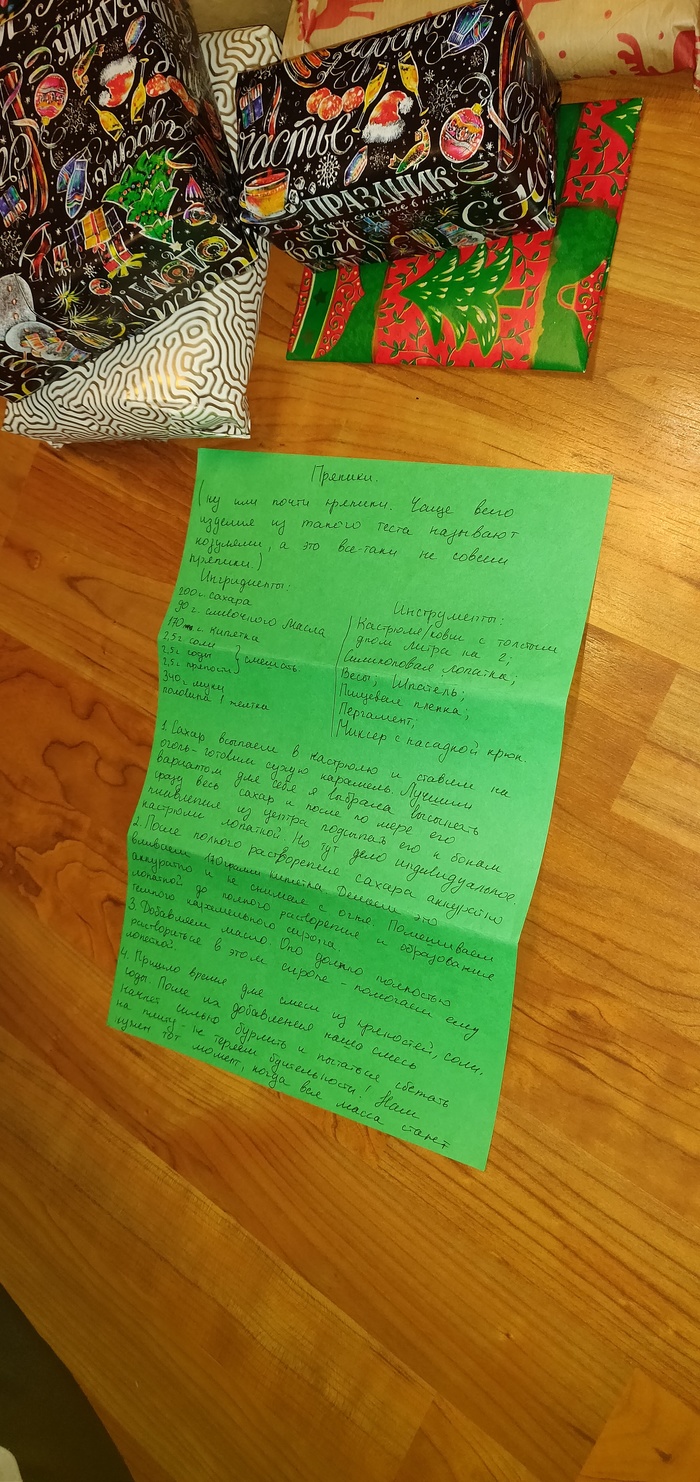 ПРАЗДНИК
счастье
ПРАЗДНИК
Пряники.
(ну или почти пряники. Чаще всего
изделия из такого теста называют
козулями, а это все-таки не совсем
пряники.)
Ингридиенты:
200г. сахара
90 г. сливочного масла
170 г. кипятка
2,5г соли
2,5г соды } смешать.
2,5г пряности
340г муки
половина 1 желтка
Инструменты:
Кастрюля/ковш с толстым
дном литра на 2;
Силиконовая лопатка;
Весы; Шпатель;
Пищевая пленка;
Пергамент;
Миксер с насадкой крюк.
1. Сахар высыпаем в кастрюлю и ставим на
огонь - готовим сухую карамель. Лучшим
вариантом для себя я выбрала высыпать
сразу весь сахар и после по мере его
плавления из центра подсыпать его к бокам
кастрюли лопаткой. Но тут дело индивидуальное.
2. После полного растворения сахара аккуратно
вливаем 170грамм кипятка. Делаем это
аккуратно и не снимая с огня. Помешиваем
лопаткой до полного растворения и образования
темного карамельного сиропа.
3. Добавляем масло. Оно должно полностью
раствориться в этом сиропе - помогаем ему
лопаткой.
4. Пришло время для смеси из пряностей, соли,
соды. После их добавления наша смесь
начнет сильно бурлить и пытаться сбежать
на плиту - не теряем бдительность! Нам
нужен тот момент, когда вся масса станет